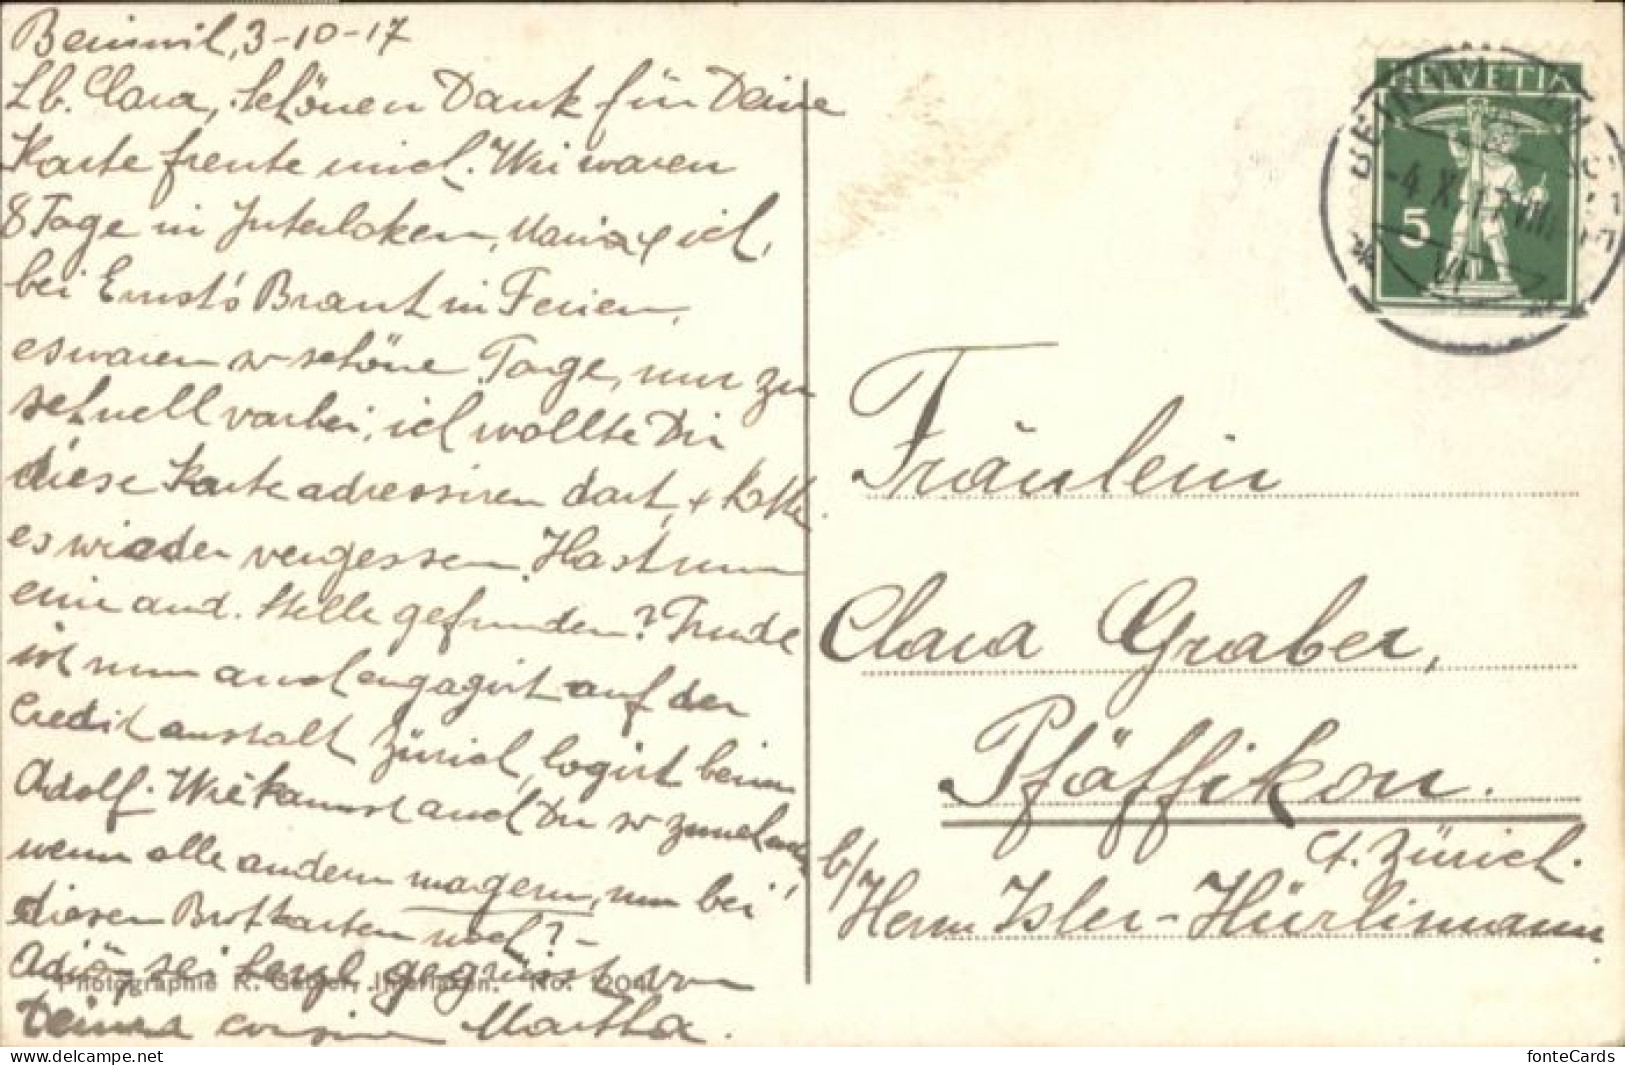 Beinwil, 3-10-17
Lb. Clara, Schönen Dank für Deine
Karte freute mich. Wir waren
8 Tage in Interlaken, Maria & ich,
bei Ernst's Braut in Ferien,
es waren so schöne Tage, nur zu
schnell vorbei, ich wollte Dir
diese Karte adressiren dort, &
es wieder vergessen. Hast nun
eine and. Stelle gefunden? Trude
ist nun auch engagirt auf der
Creditanstalt Zürich, logirt beim
Adolf. Wie kannst auch Du so zunehmen,
wenn alle andern magern, nun bei
diesen Brotkarten noch? –
Adiö, sei herzl. gegrüsst von
Deiner cousine Martha.
Photographie R. Gabler, Interlaken. No.
HELVETIA
5
BEINWIL
-4.X.17.VIII
Fräulein
Clara Graber,
Pfäffikon.
Ct. Zürich.
b/ Herrn Isler-Hürlimann
delcampe.net
fonteCards